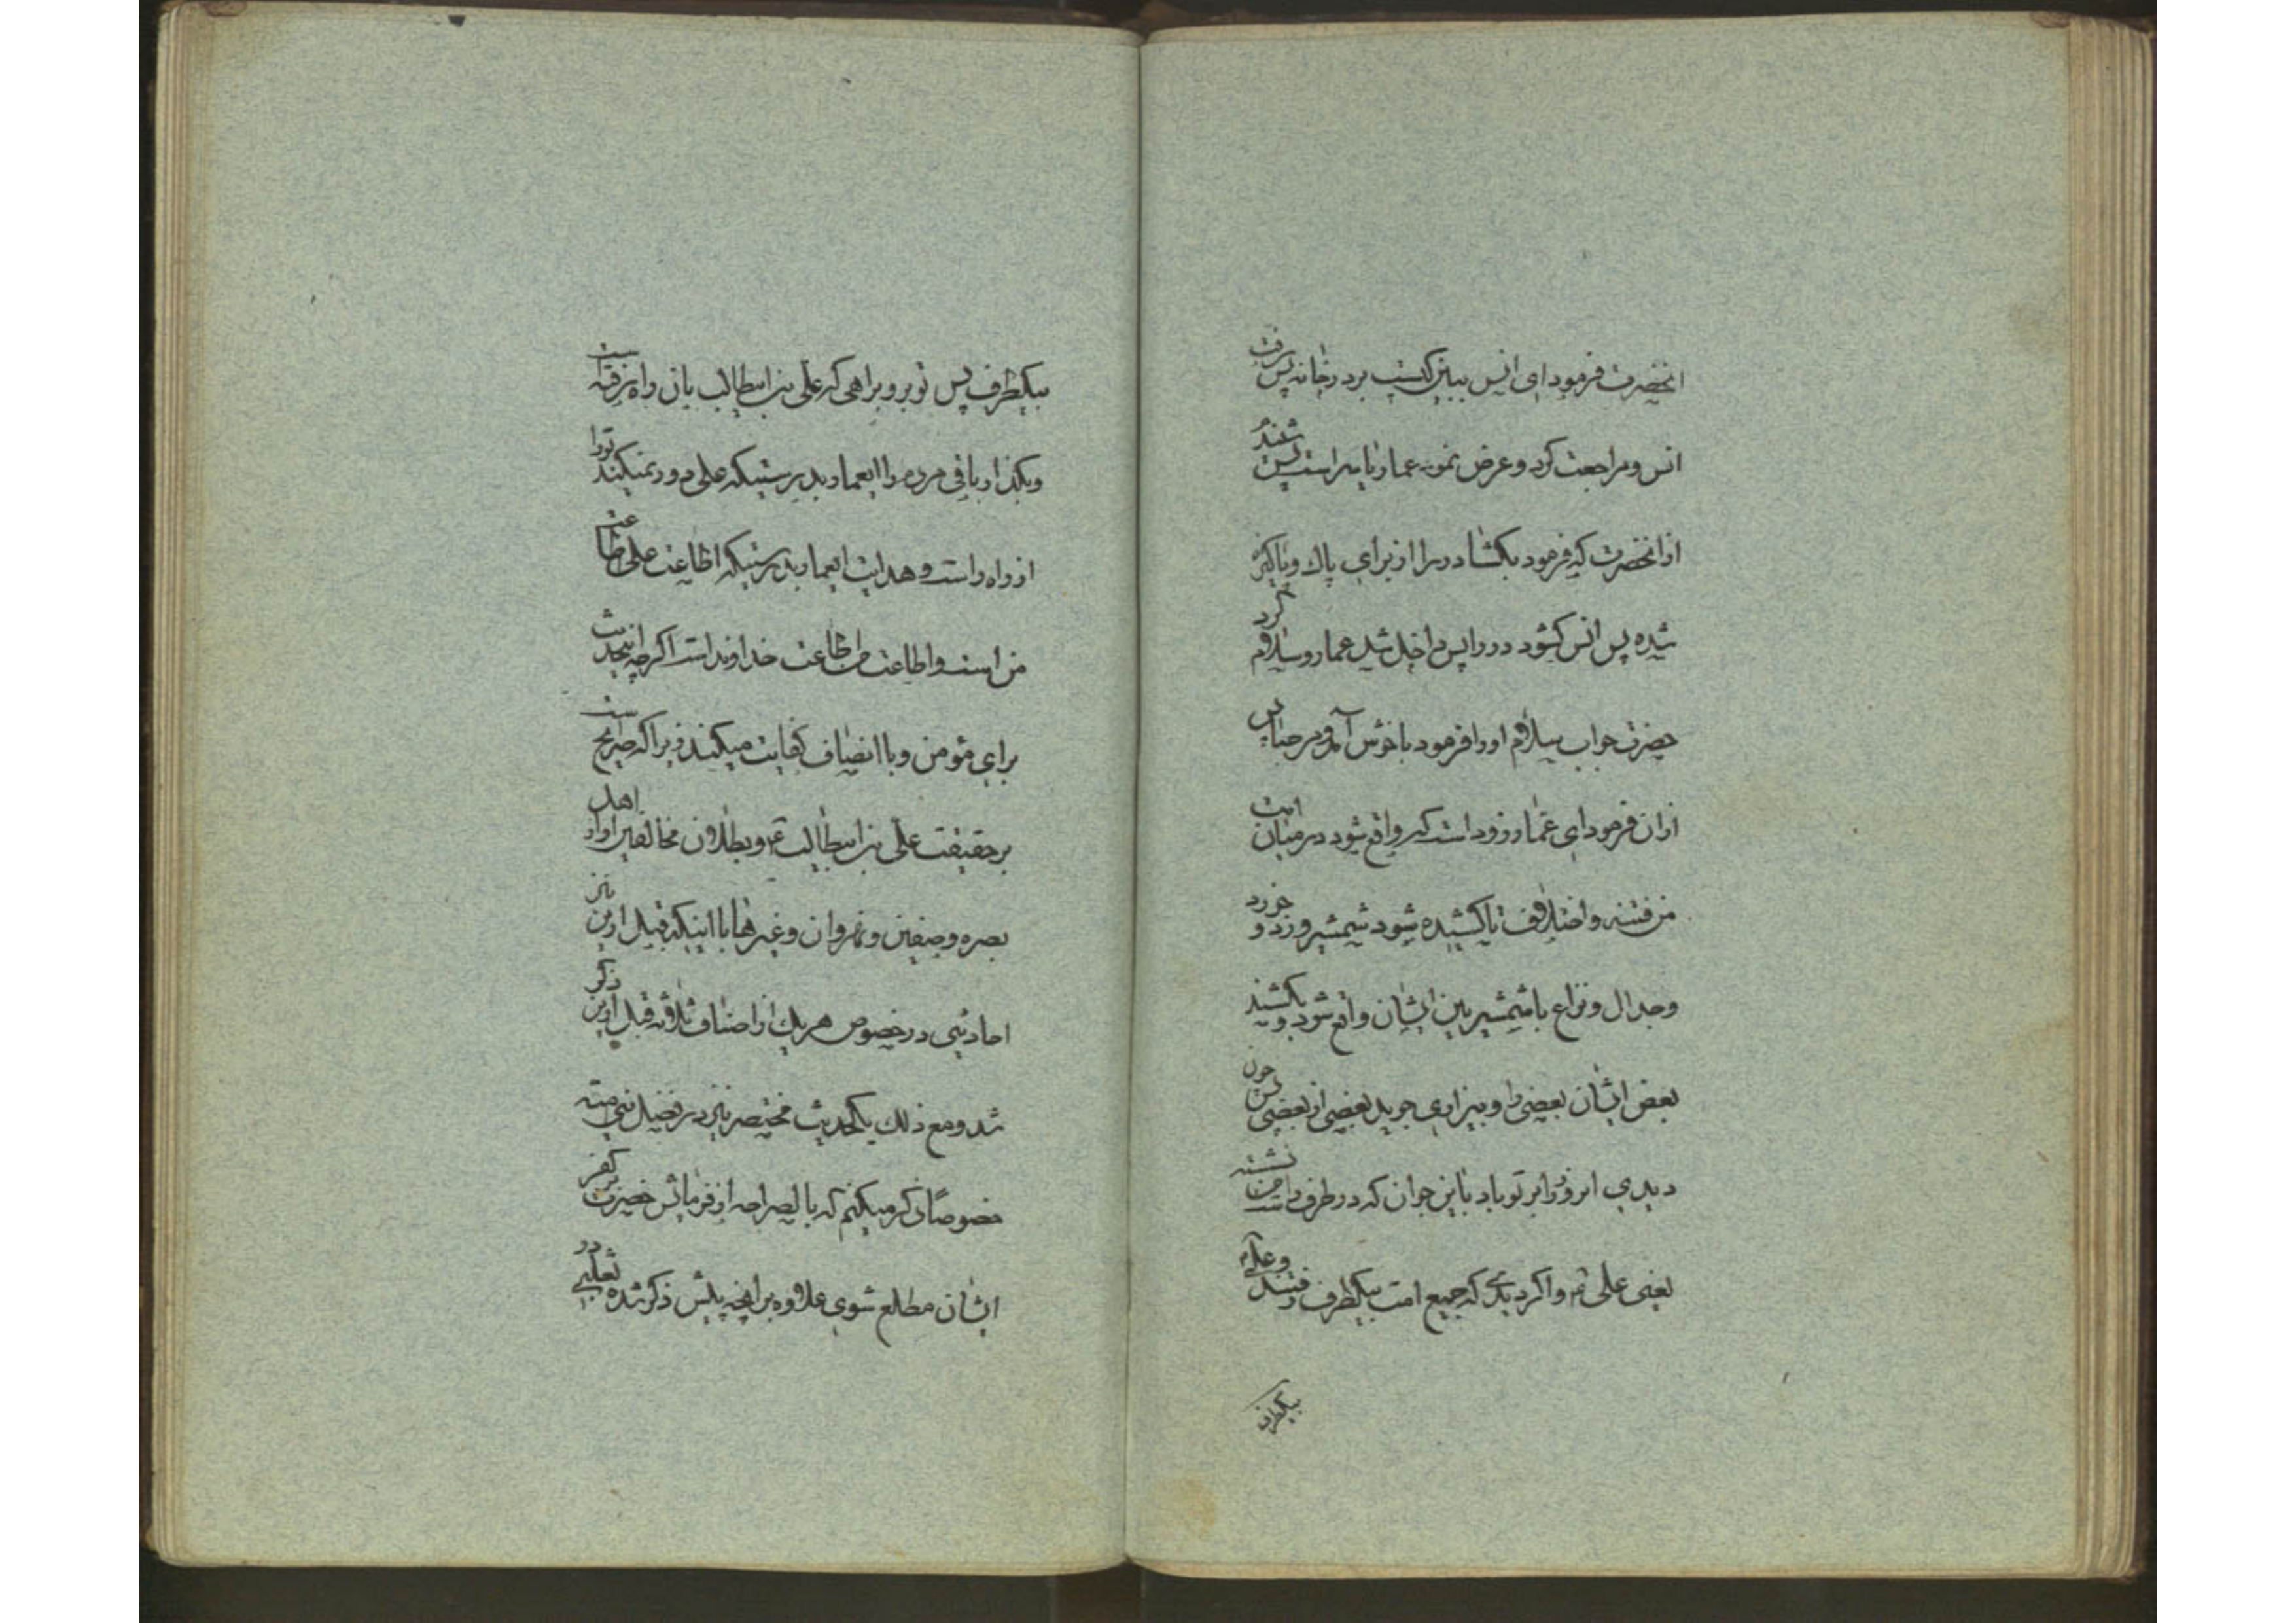 انحضرت فرمود ای انس ببین کیست بر در خانه پس رفت
انس و مراجعت کرد و عرض نمود عمار یاسر است پس شنید
از انحضرت که فرمود بکشا در را از برای پاک و پاکیزه
شده پس انس کشود در را پس داخل شد عمار و سلام کرد
حضرت جواب سلام او را فرمود با خوش آمد و مرحبا پس
از ان فرمود ای عمار زود است که واقع شود در میان امت
من فتنه و اختلاف تا کشیده شود شمشیر و زد و خورد
و جدال و نزاع با شمشیر بین ایشان واقع شود و بکشند
بعض ایشان بعضی را و بیزاری جوید بعضی از بعضی پس چون
دیدی امر را بر تو باد باین جوان که در طرف راست من نشسته
یعنی علی ع و اکر دیدی که جمیع امت بیکطرف رفتند و علی ع
بیکطرف
بیکطرف پس تو برو براهی که علی بن ابیطالب بان راه رفته است
و بکذار باقی مردم را ایعمار بدرستیکه علی دور نمیکند تو را
از راه راست و هدایت ایعمار بدرستیکه اطاعت علی طاعت
من است و اطاعت من طاعت خداوند است اکر چه اینحدیث
برای مؤمن و با انصاف کفایت میکند زیرا که صریح است
بر حقیقت علی بن ابیطالب ع و بطلان مخالفین او از اهل
بصره و صفین و نهروان و غیرها با اینکه قبل از این نیز
احادیثی در خصوص هر یک از اصناف ثلاثه قبل از این ذکر
شد و مع ذلک یکحدیث مختصر نیز در فضل بنی امیه
خصوصا ذکر میکنم که بالصراحه از فرمایش حضرت بر کفر
ایشان مطلع شوی علاوه بر انچه پیش ذکر شده ثعلبی در